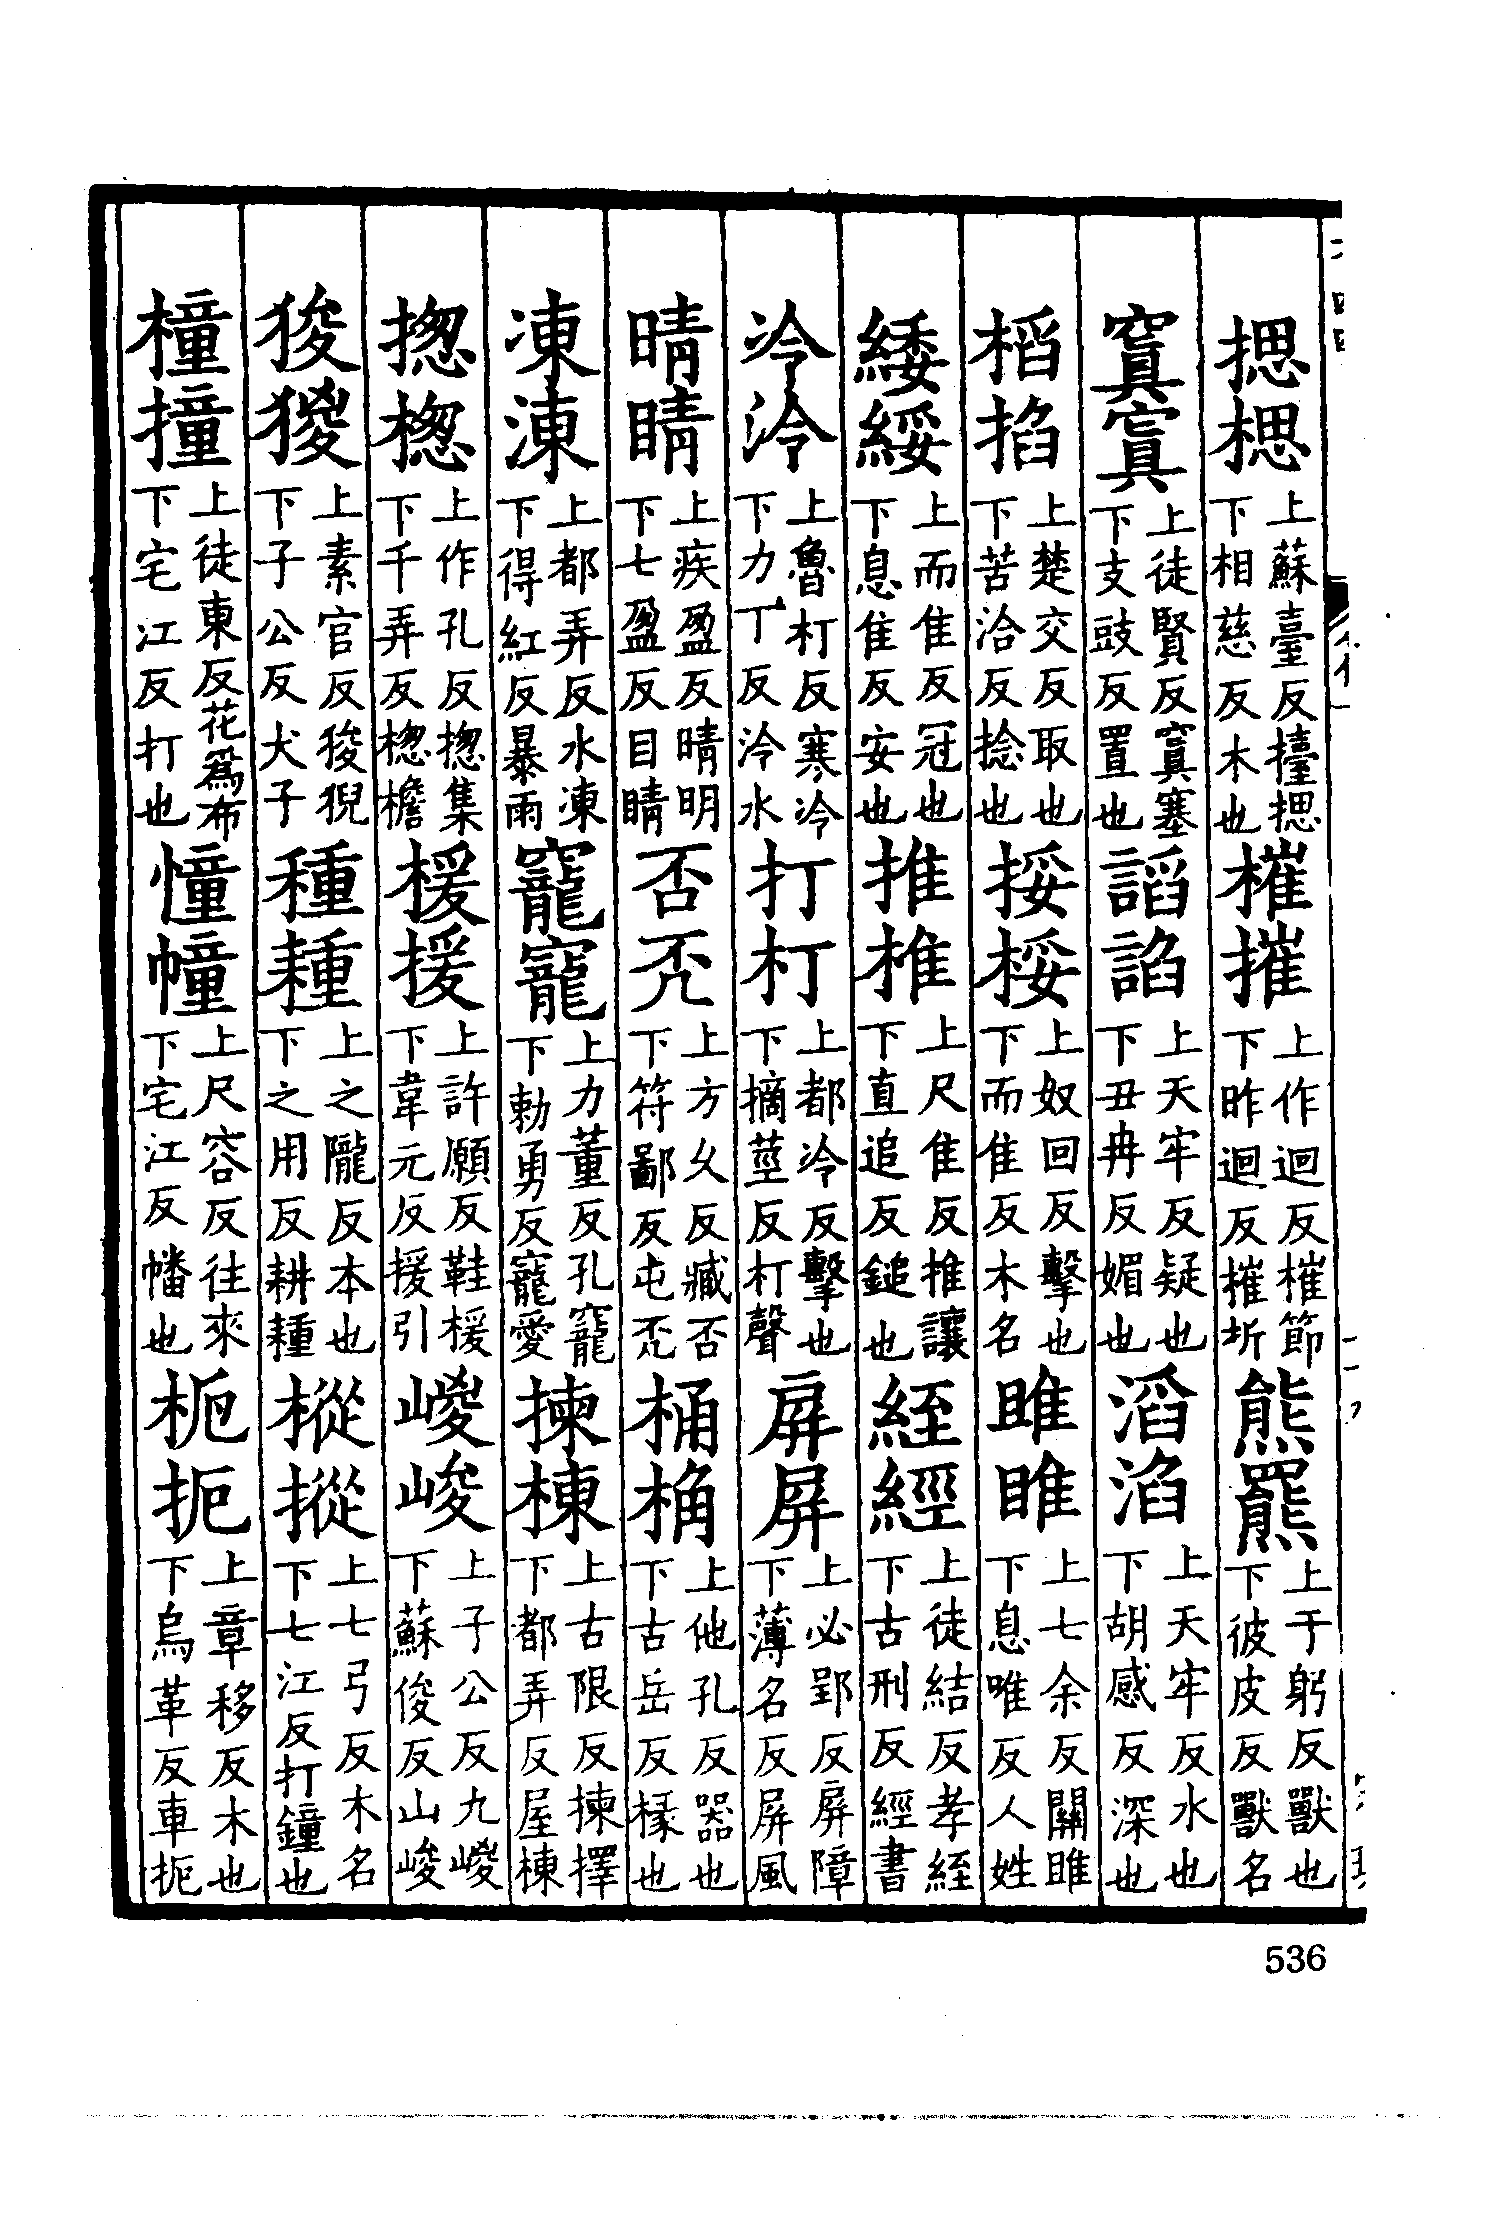 揌楒上蘇臺反擡揌下相慈反木也槯摧上作迴反槯節下昨迴反摧圻熊羆上于躬反獸也下彼皮反獸名
窴寘上徒賢反窴塞下支豉反置也謟諂上天牢反疑也下丑冉反媚也滔淊上天牢反水也下胡感反深也
槄掐上楚交反取也下苦洽反捻也挼桵上奴回反擊也下而隹反木名雎睢上七余反關雎下息唯反人姓
緌綏上而隹反冠也下息隹反安也推椎上尺隹反推讓下直追反鎚也絰經上徒結反孝絰下古刑反經書
冷泠上魯打反寒冷下力丁反泠水打朾上都冷反擊也下摘莖反朾聲屏屏上必郢反屏障下薄名反屏風
晴睛上疾盈反晴明下七盈反目睛否上方久反臧否下符鄙反屯桶桷上他孔反器也下古岳反椽也
凍涷上都弄反水凍下得紅反暴雨竉寵上力董反孔竉下勅勇反寵愛揀棟上古限反揀擇下都弄反屋棟
揔楤上作孔反揔集下千弄反楤檐楥援上許願反鞋楥下韋元反援引嵕峻上子公反九嵕下蘇俊反山峻
狻猣上素官反狻猊下子公反犬子種上之隴反本也下之用反耕樅摐上七弓反木名下七江反打鐘也
橦撞上徒東反花為布下宅江反打也憧幢上尺容反往來下宅江反幡也栀扼上章移反木也下烏革反車扼
536